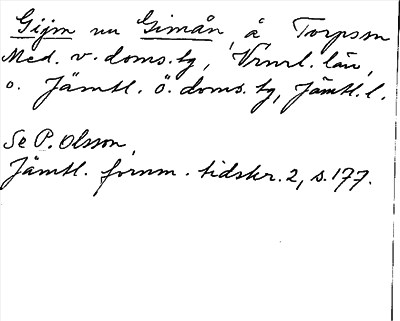 Gijm nu Gimån, å, Torpsn
Med. v. doms.tg, Vrnrl. län,
o. Jämtl. ö. doms. tg, Jämtl. l.
Se P. Olsson,
Jämtl. fornm. tidskr. 2, s. 177.